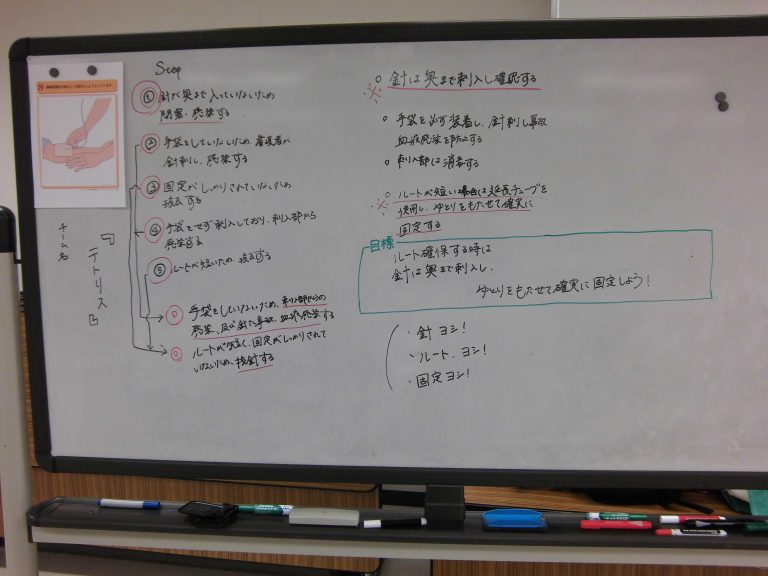 Step
① 針が奥まで入っていないため
閉塞、感染する
② 手袋をしていないため、看護者が
針刺し、感染する
③ 固定がしっかりされていないため
抜去する
④ 手袋をせず刺入しており、刺入部から
感染する
⑤ ルートが短いため、抜去する
○ 手袋をしていないため、刺入部からの
感染、及び針さし事故、血液感染する
○ ルートが短く、固定がしっかりされて
いないため、抜針する
チーム名
『テトリス』
※○ 針は奥まで刺入し確認する
○ 手袋を必ず装着し、針刺し事故
血液感染を防止する
○ 刺入部は消毒する
※○ ルートが短い場合は延長チューブを
使用し、ゆとりをもたせて確実に
固定する
目標
ルート確保する時は
針は奥まで刺入し、
ゆとりをもたせて確実に固定しよう!
・針 ヨシ!
・ルート、ヨシ!
・固定ヨシ!